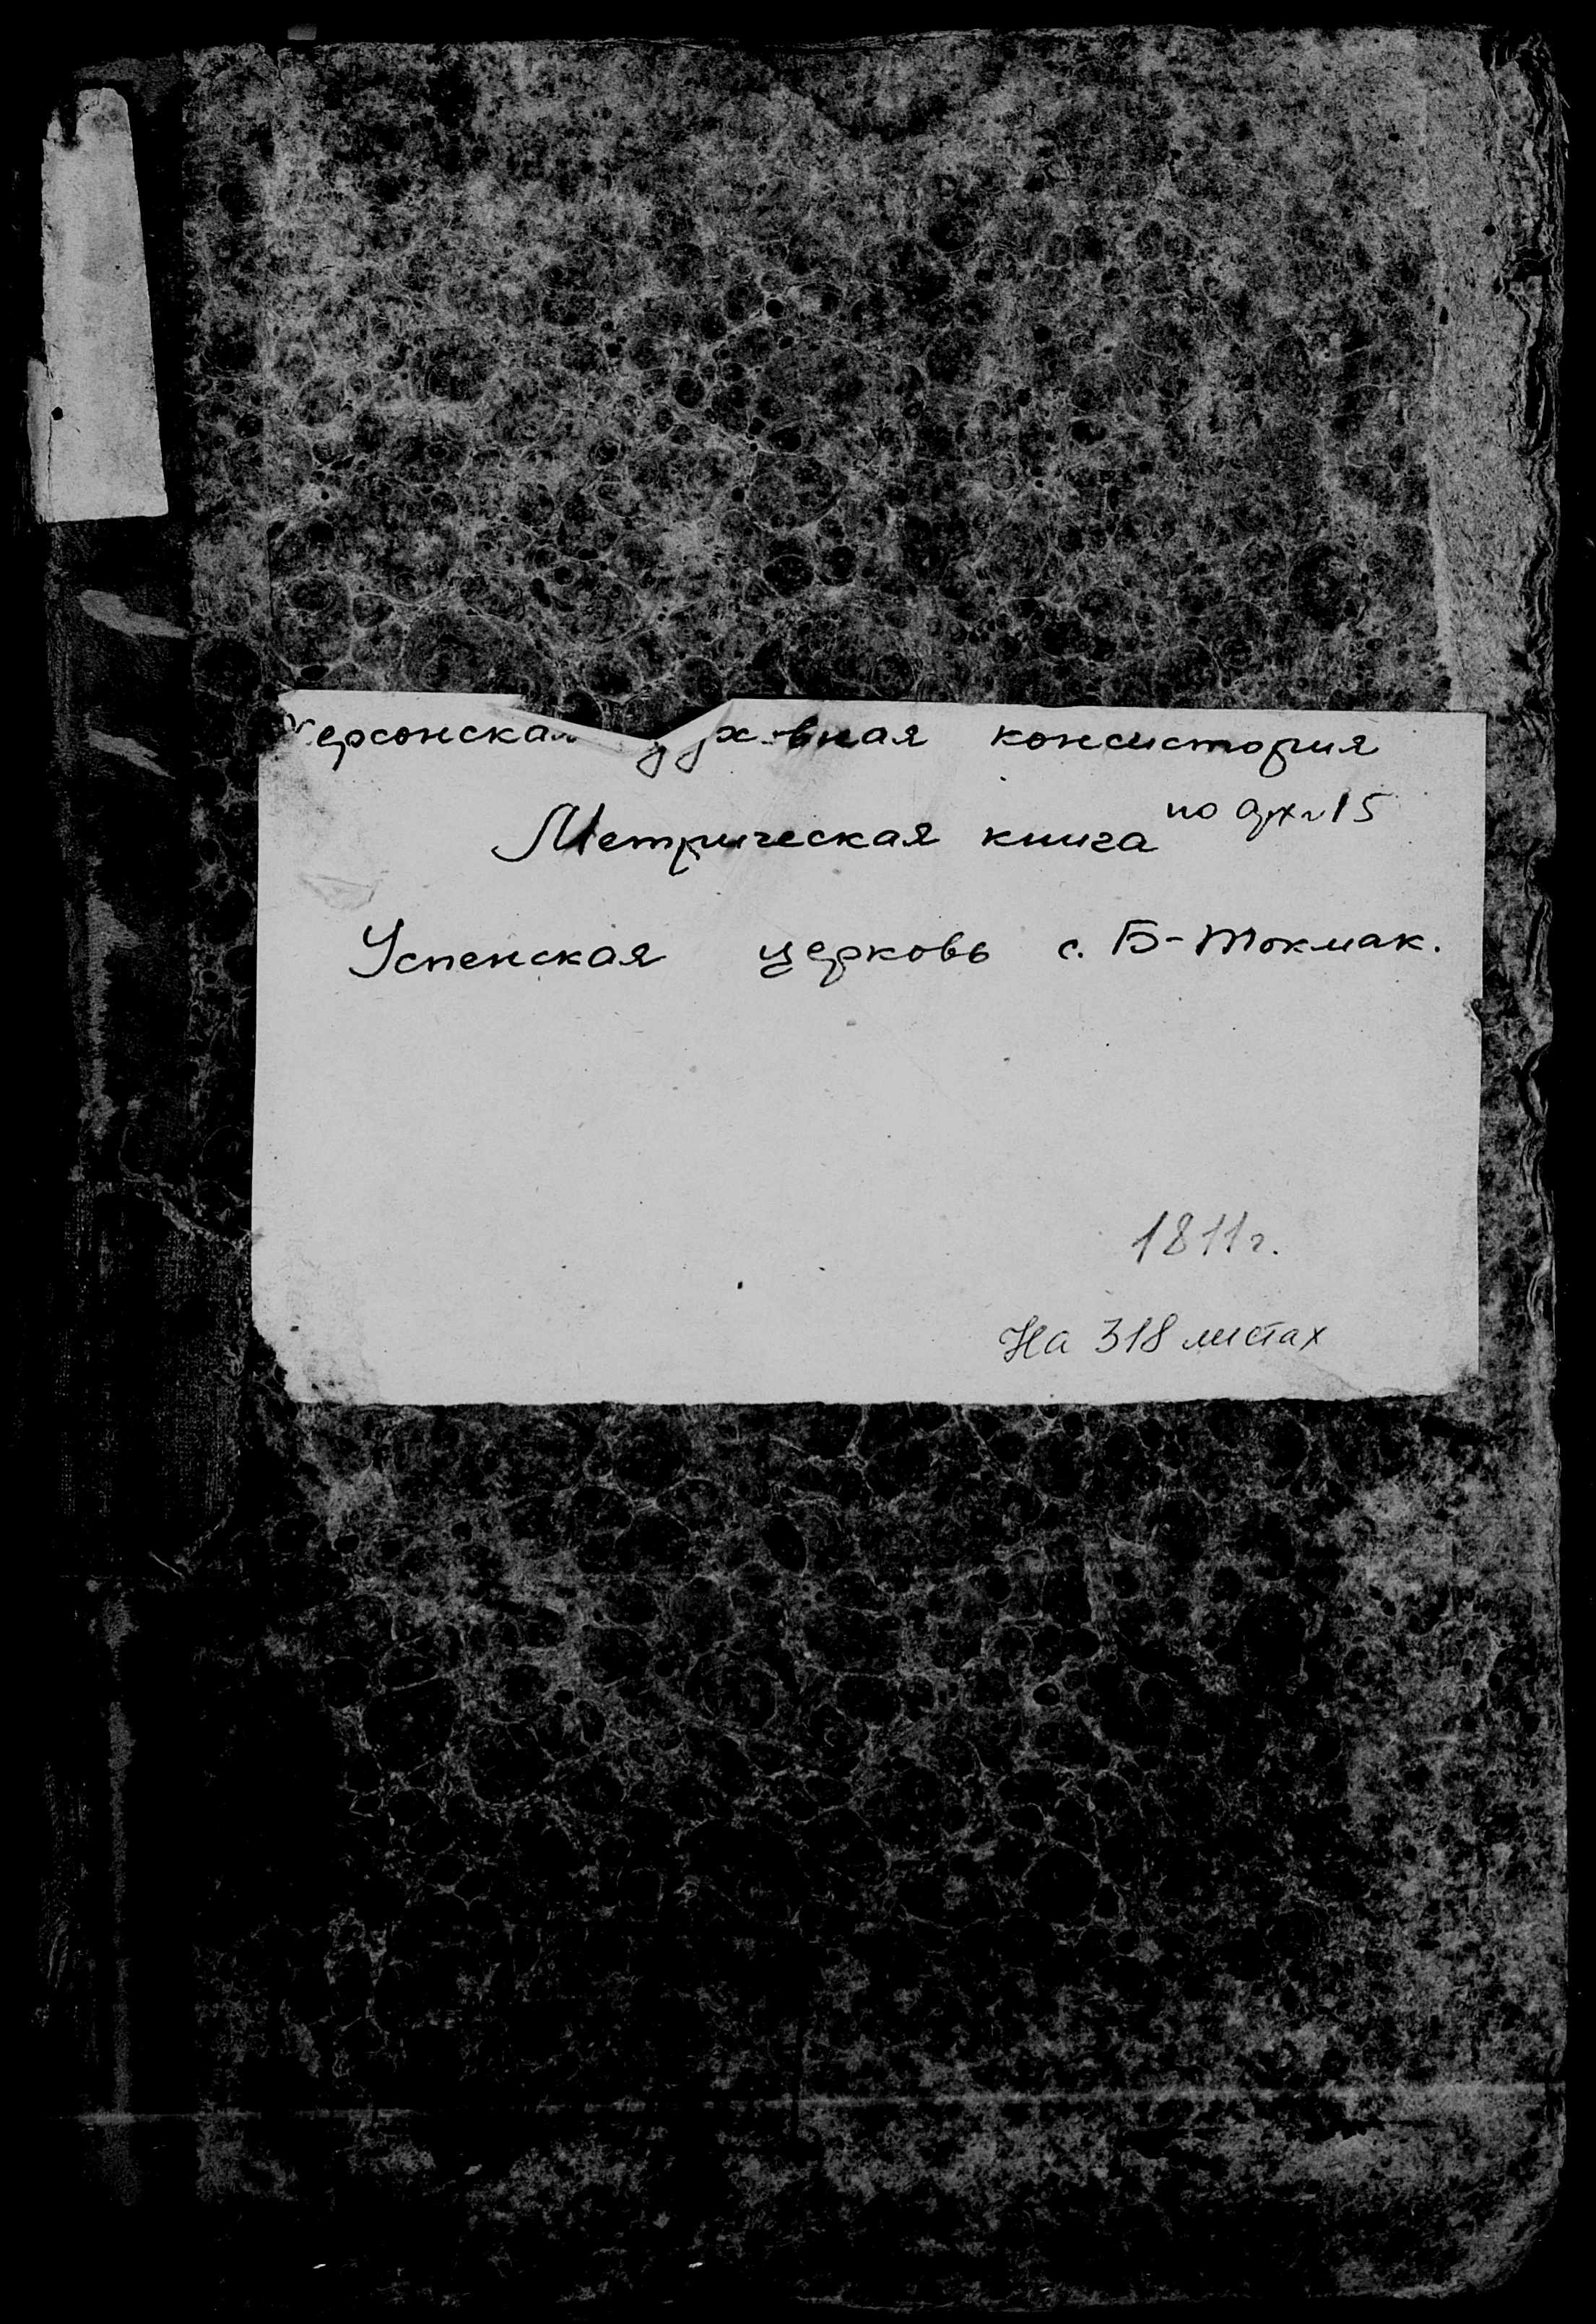 Херсонская духовная консистория
Метрическая книга
Успенская церковь с. Б-Токмак.
1811г.
На 318 листах